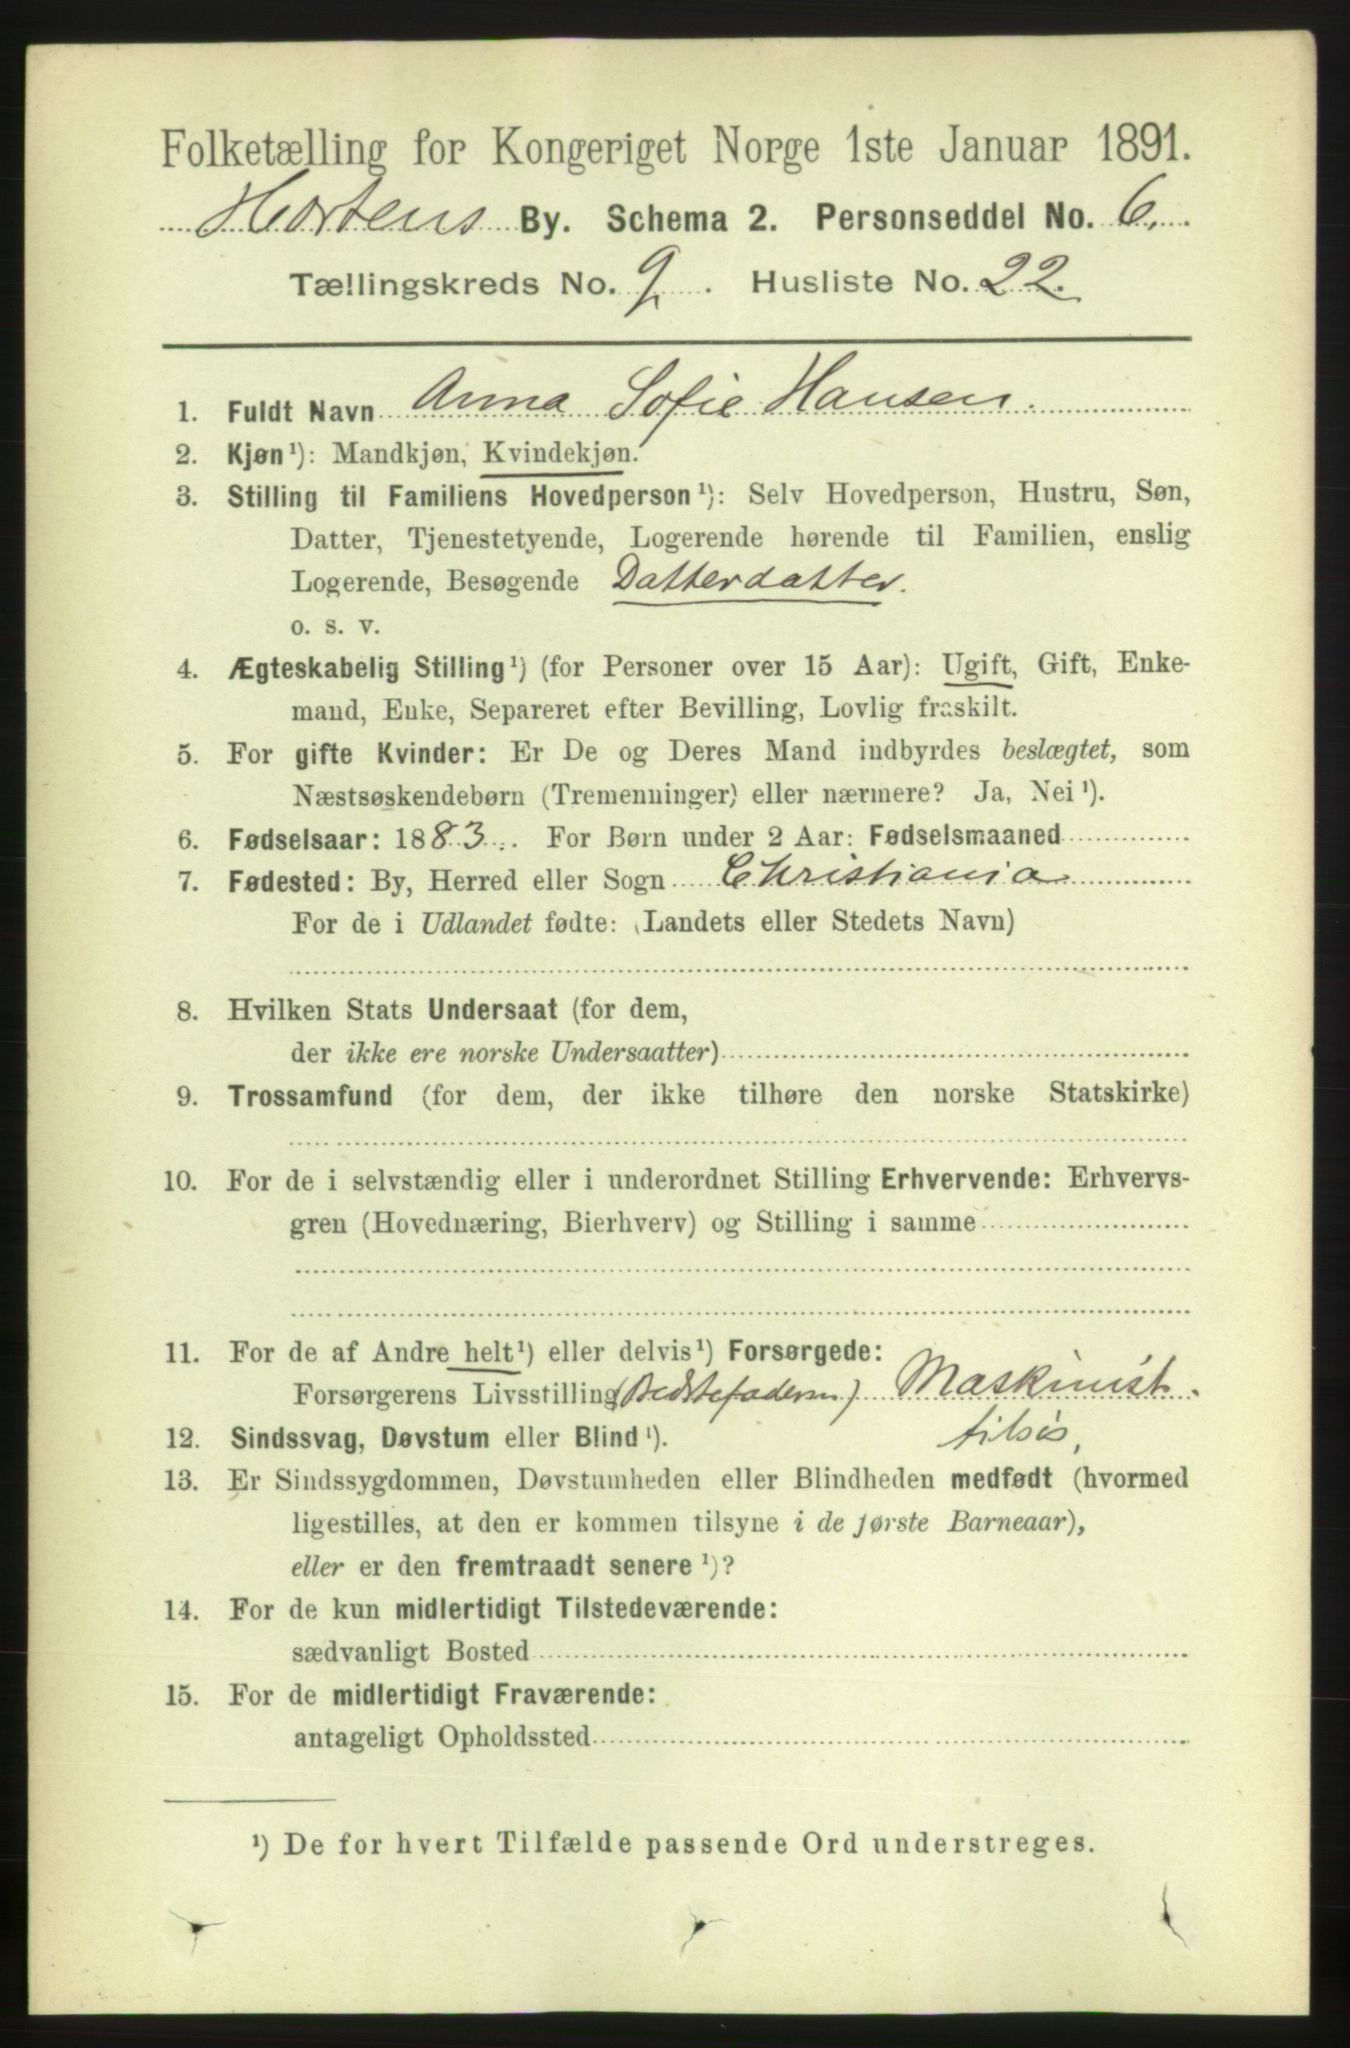 Folketælling for Kongeriget Norge 1ste Januar 1891.
Hortens By. Schema 2. Personseddel No. 6.
Tællingskreds No. 9. Husliste No. 22.
1. Fuldt Navn Anna Sofie Hansen.
2. Kjøn¹): Mandkjøn, Kvindekjøn.
3. Stilling til Familiens Hovedperson¹): Selv Hovedperson, Hustru, Søn,
Datter, Tjenestetyende, Logerende hørende til Familien, enslig
Logerende, Besøgende Datterdatter.
o. s. v.
4. Ægteskabelig Stilling¹) (for Personer over 15 Aar): Ugift, Gift, Enke-
mand, Enke, Separeret efter Bevilling, Lovlig fraskilt.
5. For gifte Kvinder: Er De og Deres Mand indbyrdes beslægtet, som
Næstsøskendebørn (Tremenninger) eller nærmere? Ja, Nei¹).
6. Fødselsaar: 1883. For Børn under 2 Aar: Fødselsmaaned
7. Fødested: By, Herred eller Sogn Christiania
For de i Udlandet fødte: (Landets eller Stedets Navn)
8. Hvilken Stats Undersaat (for dem,
der ikke ere norske Undersaatter)
9. Trossamfund (for dem, der ikke tilhøre den norske Statskirke)
10. For de i selvstændig eller i underordnet Stilling Erhvervende: Erhvervs-
gren (Hovednæring, Bierhverv) og Stilling i samme
11. For de af Andre helt¹) eller delvis¹) Forsørgede:
Forsørgerens Livsstilling (Bedstefaderen) Maskinist
12. Sindssvag, Døvstum eller Blind¹). tilsös,
13. Er Sindssygdommen, Døvstumheden eller Blindheden medfødt (hvormed
ligestilles, at den er kommen tilsyne i de første Barneaar),
eller er den fremtraadt senere¹)?
14. For de kun midlertidigt Tilstedeværende:
sædvanligt Bosted
15. For de midlertidigt Fraværende:
antageligt Opholdssted
¹) De for hvert Tilfælde passende Ord understreges.